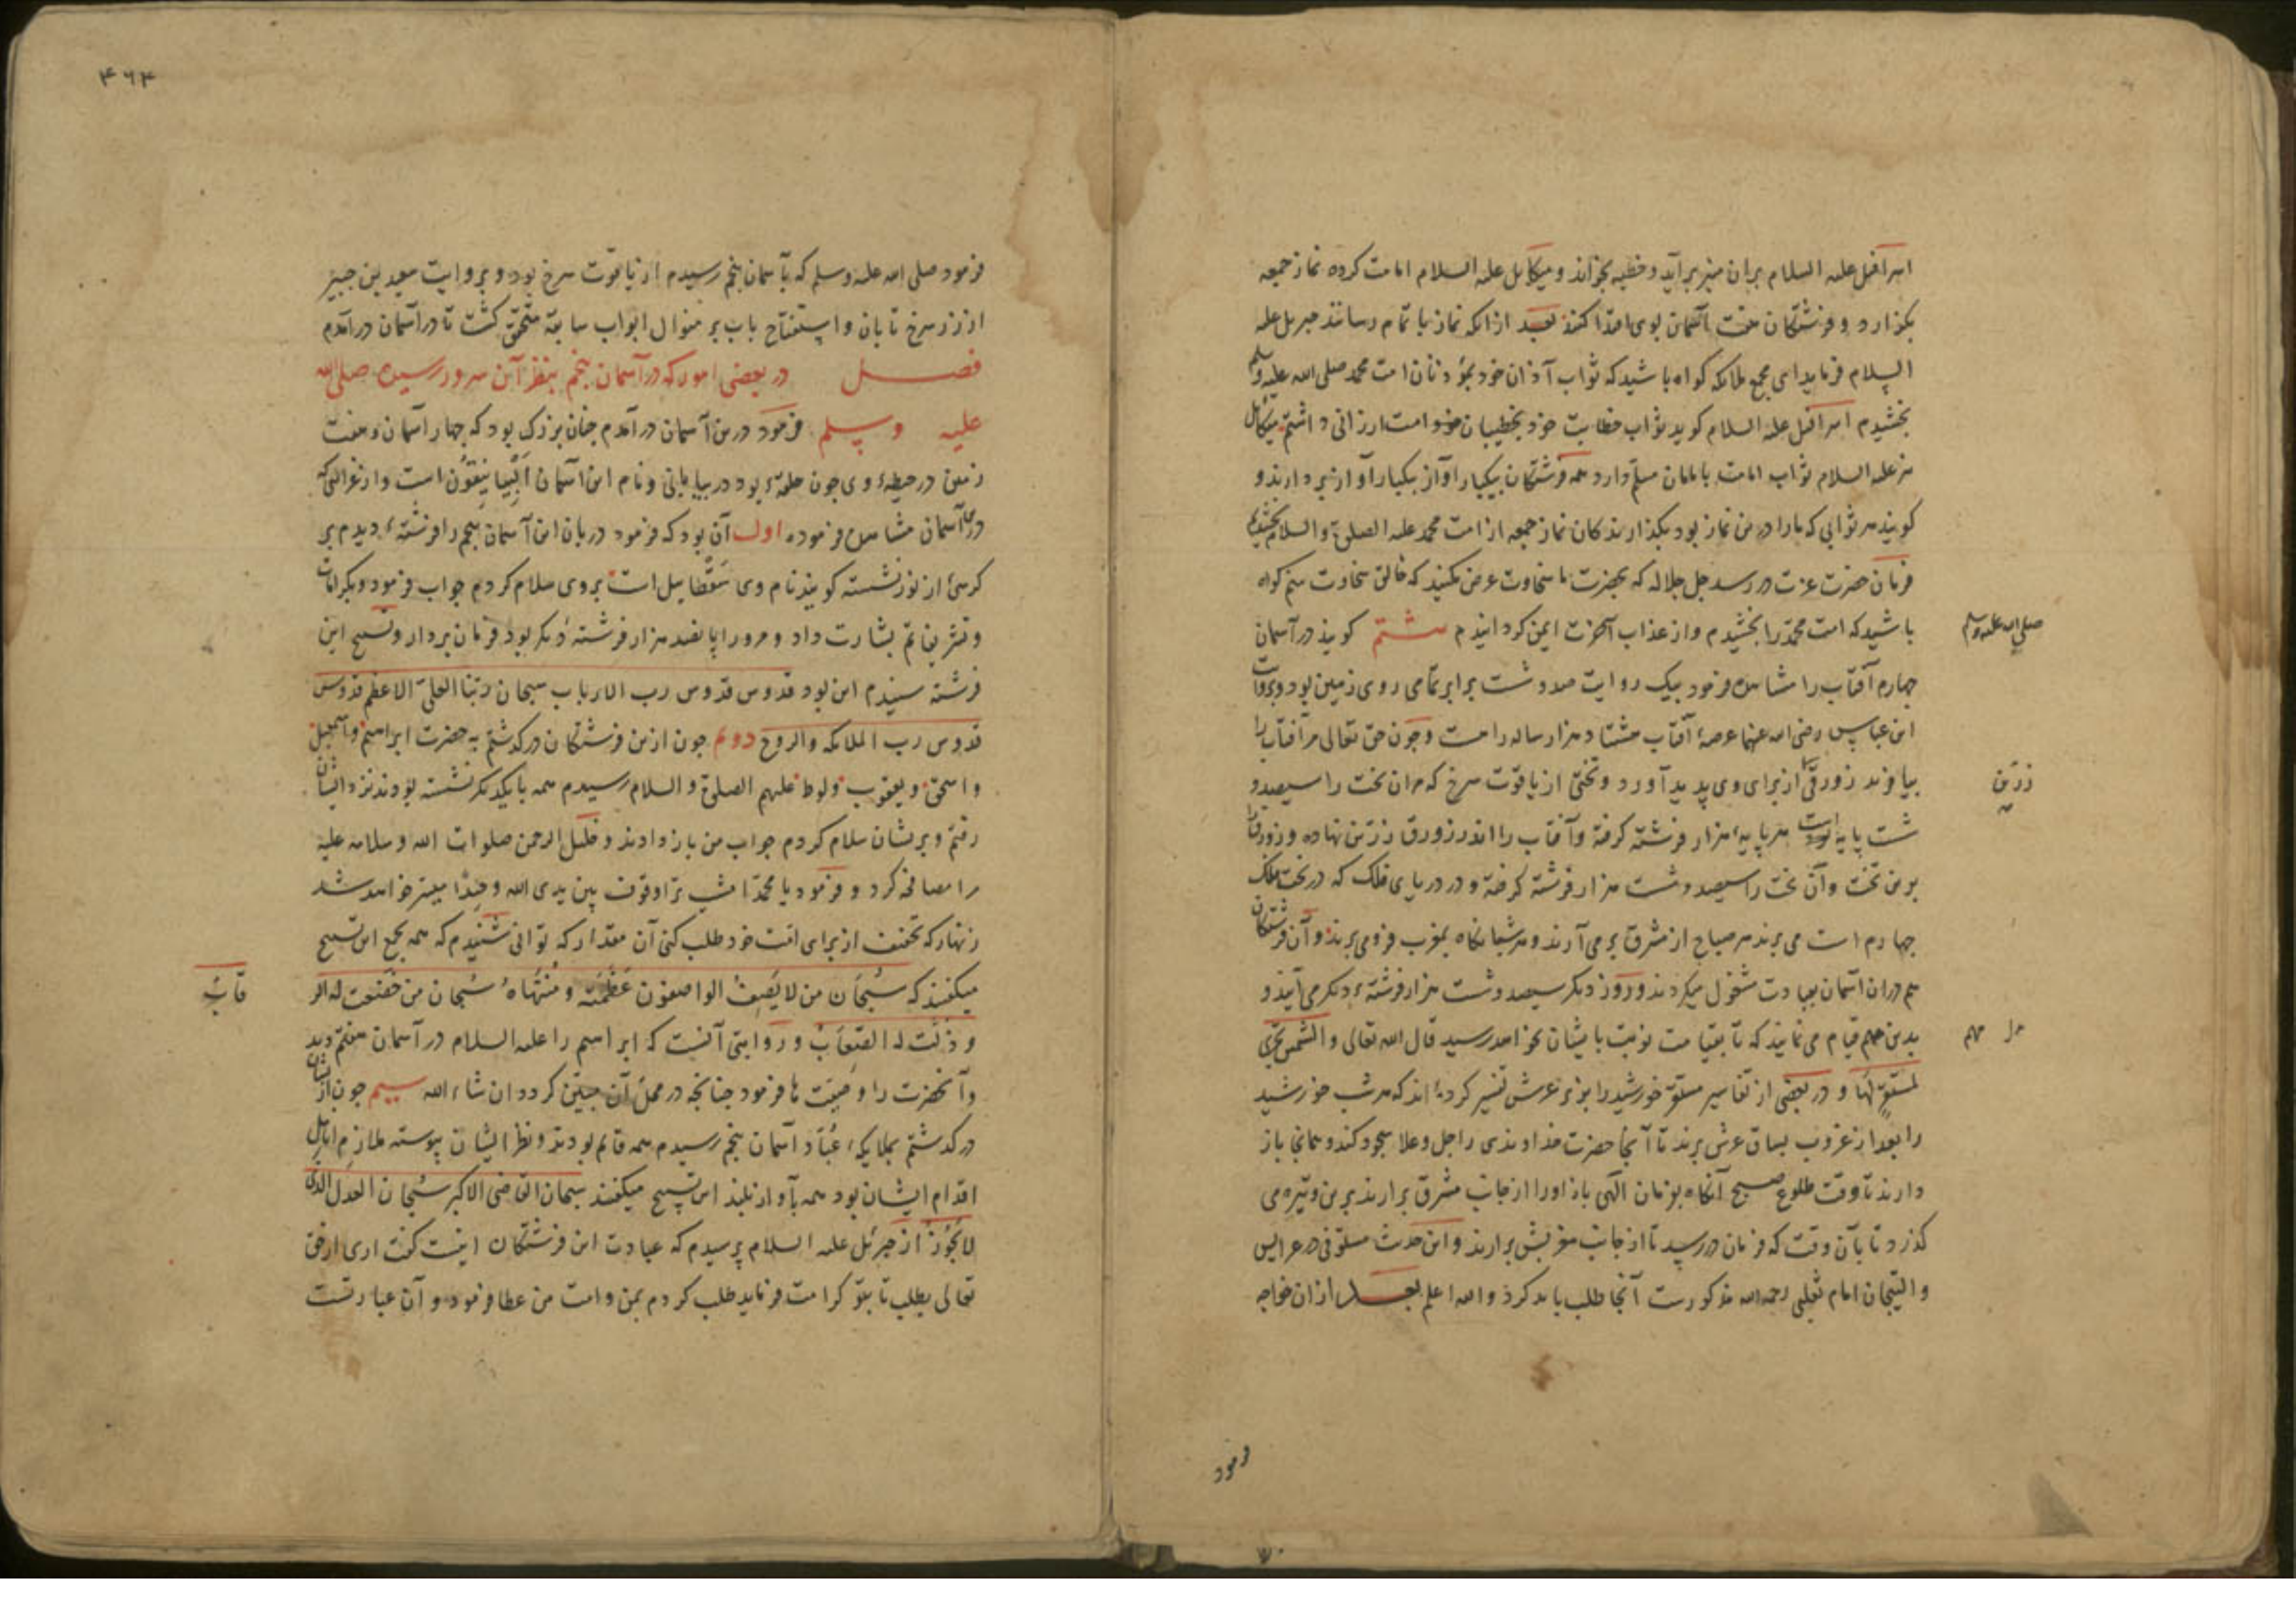 اسرافیل علیه السلام بران منبر برآید و خطبه بخواند و میکائل علیه السلام امامت کرده نماز جمعه
بکزارد و فرشتکان هفت آسمان بوی اقتدا کنند بعد ازانکه نماز باتمام رسانند جبریل علیه
السلام فرماید ای مجمع ملائکه کواه باشید که ثواب آذان خود بمؤذنان امت محمد صلی الله علیه وسلم
بخشیدم اسرافیل علیه السلام کوید ثواب خطابت خود بخطیبان امت ارزانی داشتم میکائل
نیز علیه السلام ثواب امامت بامامان مسلم دارد همه فرشتکان بیکبار آواز بردارند و
کویند هر ثوابی که مارا درین نماز بود بکذارندکان نماز جمعه از امت محمد علیه الصلوة والسلام بخشیدیم
فرمان حضرت عزت در رسد جل جلاله که بحضرت ما سخاوت عرض میکنید که خالق سخاوت منم کواه
باشید که امت محمد را بخشیدم و از عذاب آخرت ایمن کردانیدم هشتم کویند در آسمان
صلی الله علیه وسلم
چهارم آفتاب را مشاهده فرمود بیک روایت صد و شست برابر تمامی روی زمین بود و بروایت
ابن عباس رضی الله عنهما عرصهٔ آفتاب هشتاد هزار ساله راهست و چون حق تعالی مر آفتاب را
بیافرید زورقی از برای وی پدید آورد و تختی از یاقوت سرخ که مران تخت را سیصد و
زرین
شست پایه است هر پایه هزار فرشته کرفته و آفتاب را اندر زورق زرین نهاده و زورق را
برین تخت و آن تخت را سیصد و شست هزار فرشته کرفته و در دریای فلک که در تحت فلک
چهارم است می برند هر صباح از مشرق برمی آرند و هر شبانکاه بمغرب فرو می برند و آن فرشتکان
هم دران آسمان بعبادت مشغول میکردند و روز دیکر سیصد و شست هزار فرشتهٔ دیکر می آیند و
بدین مهم قیام می نمایند که تا بقیامت نوبت بایشان نخواهد رسید قال الله تعالی والشمس تجری
مهم
لمستقر لها و در بعضی از تفاسیر مستقر خورشید را بزیر عرش تفسیر کرده اند که هر شب خورشید
را بعد از غروب بساق عرش برند تا آنجا حضرت خداوندی را جل وعلا سجود کند و همانجا باز
دارند تا وقت طلوع صبح آنکاه بفرمان الهی باز اورا از جانب مشرق برارند برین وتیره می
کذرد تا بآن وقت که فرمان در رسید تا از جانب مغربش برارند و این حدیث مستوفی در عرایس
والتیجان امام ثعلبی رحمه الله مذکورست آنجا طلب باید کرد والله اعلم بعد ازان خواجه
فرمود
۴۶۴
فرمود صلی الله علیه وسلم که بآسمان پنجم رسیدم از یاقوت سرخ بود و بروایت سعید بن جبیر
از زر سرخ تابان و استفتاح باب بر منوال ابواب سابقه متحقق کشت تا در آسمان درآمدم
فصل در بعضی امور که در آسمان پنجم بنظر آن سرور رسیده صلی الله
علیه وسلم فرمود درین آسمان درآمدم چنان بزرک بود که چهار آسمان و هفت
زمین در حیطهٔ وی چون حلقهٔ بود در بیابانی و نام این آسمان است و از غرائبی که
دران آسمان مشاهده فرموده اول آن بود که فرمود دربان این آسمان پنجم را فرشتهٔ دیدم بر
کرسی از نور نشسته کویند نام وی سقطاییل است بروی سلام کردم جواب فرمود و بکرامات
و تشریفاتم بشارت داد و مرورا پانصد هزار فرشته دیکر بود فرمان بردار و تسبیح این
فرشته شنیدم این بود قدوس قدوس رب الارباب سبحان ربنا العلی الاعظم قدوس
قدوس رب الملائکه والروح دوم چون ازین فرشتکان درکذشتم به حضرت ابراهیم و اسمعیل
و اسحق و یعقوب و لوط علیهم الصلوة والسلام رسیدم همه بایکدیکر نشسته بودند نزد ایشان
رفتم و بریشان سلام کردم جواب من باز دادند و خلیل الرحمن صلوات الله وسلامه علیه
مرا مصافحه کرد و فرمود یا محمد امشب ترا وقوف بین یدی الله وحیدا میسر خواهد شد
زنهار که تخفیف از برای امت خود طلب کنی آن مقدار که توانی شنیدم که همه بجمع این تسبیح
میکفتند که سبحان من لا یصف الواصفون عظمته ومنتهاه سبحان من خضعت له الر
قاب
وذلت له الصعاب و روایتی آنست که ابراهیم را علیه السلام در آسمان هفتم دید
و آنحضرت را وصیت ها فرمود چنانچه در محل آن مبین کردد ان شاء الله سیم چون ازیشان
درکذشتم بملایکهٔ عباد آسمان پنجم رسیدم همه قائم بودند و نظر ایشان پیوسته ملازم
اقدام ایشان بود همه بآواز بلند این تسبیح میکفتند سبحان القاضی الاکبر سبحان العدل الذی
لا یجور از جبرئیل علیه السلام پرسیدم که عبادت این فرشتکان اینست کفت آری از حق
تعالی بطلب تا بتو کرامت فرماید طلب کردم بمن و امت من عطا فرمود و آن عبادتست